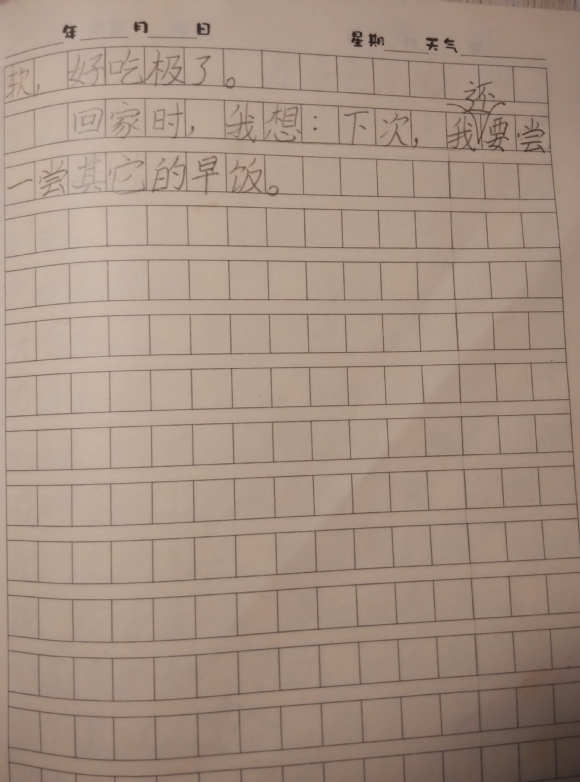 年 月 日 星期 天气
软，好吃极了。
回家时，我想：下次，我还要尝
一尝其它的早饭。